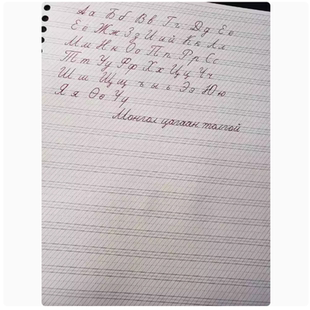 Аа Бб Вв Гг Дд Ее
Ёё Жж Зз Ии й Кк Лл
Мм Нн Оо Пп Рр Сс
Тт Уу Фф Хх Цц Чч
Шш Щщ ъ ы ь Ээ Юю
Яя Өө Үү
Монгол цагаан толгой